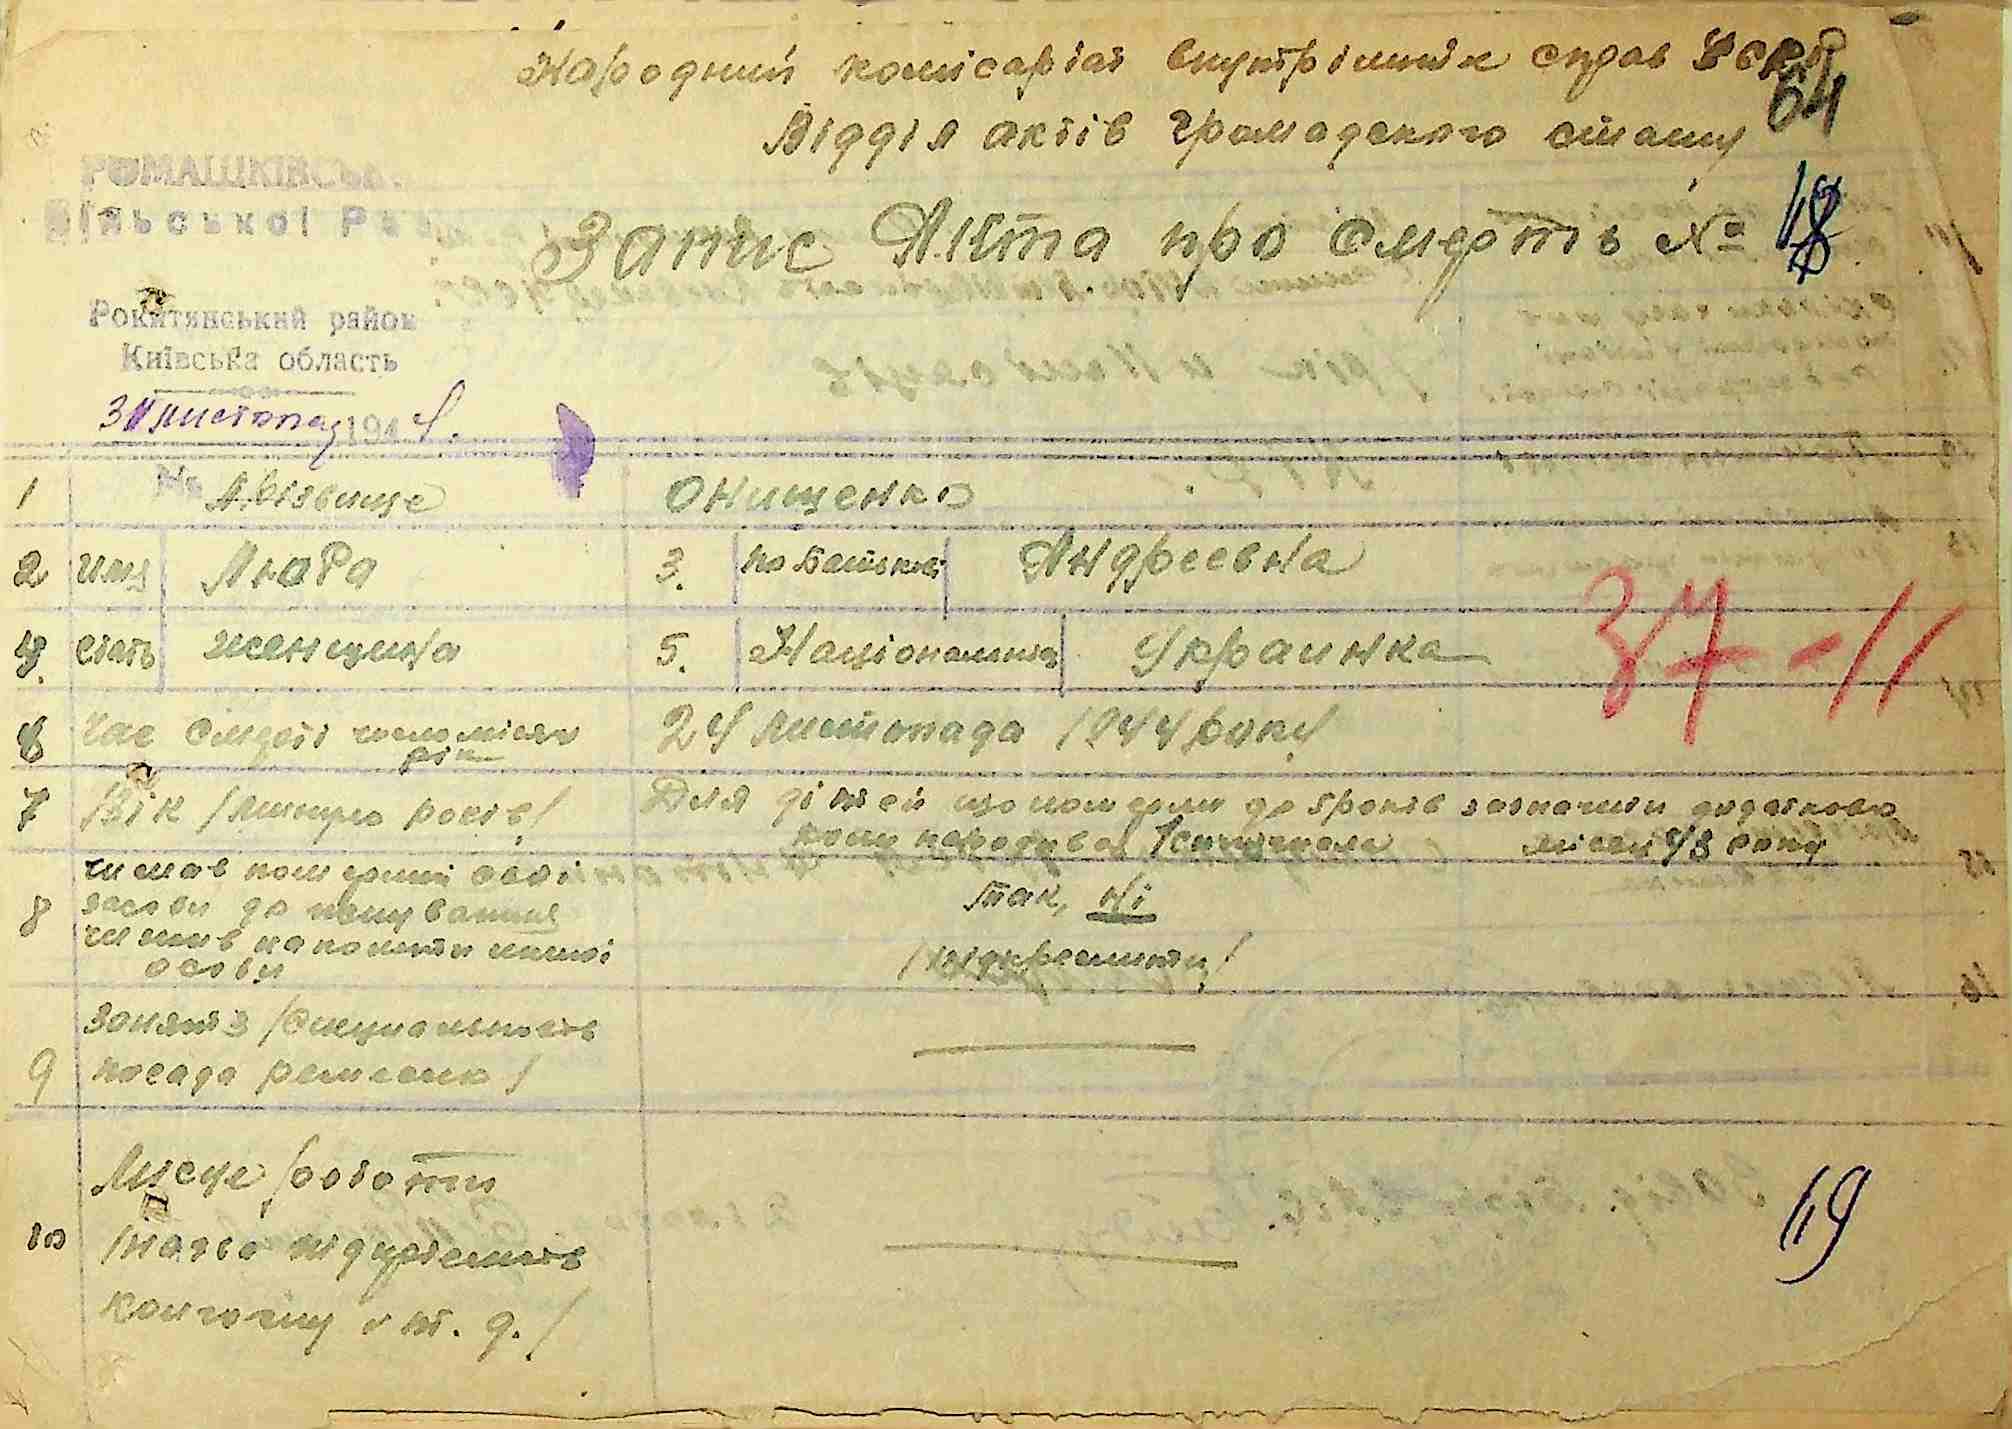 Народний комісаріат внутрішніх справ УСРР
64
Відділ актів громадського стану
РОМАШКІВСЬК
Сільської Ра
Запис Акта про смерть № 18
Рокитянський район
Київська область
30 листопад 1944.
1 Прізвище Онищенко
2 имя Люба 3. по Батькові Андреевна
4. стать женщина 5. Національність Украинка
37-11
6 Час смерті число місяць рік 24 листопада 1944 року
7 Вік /минуло років/ Для дітей що померли до 5 років зазначити додатково
кому народивсь місяць
8 чи мав померший свої засоби до існування чи жив на кошти іншої особи так, ні
/підкреслити/
9 Заняття /специальність посада ремесло/
10 Місце роботи
/назва підприємств
колгоспу и т. д./
19